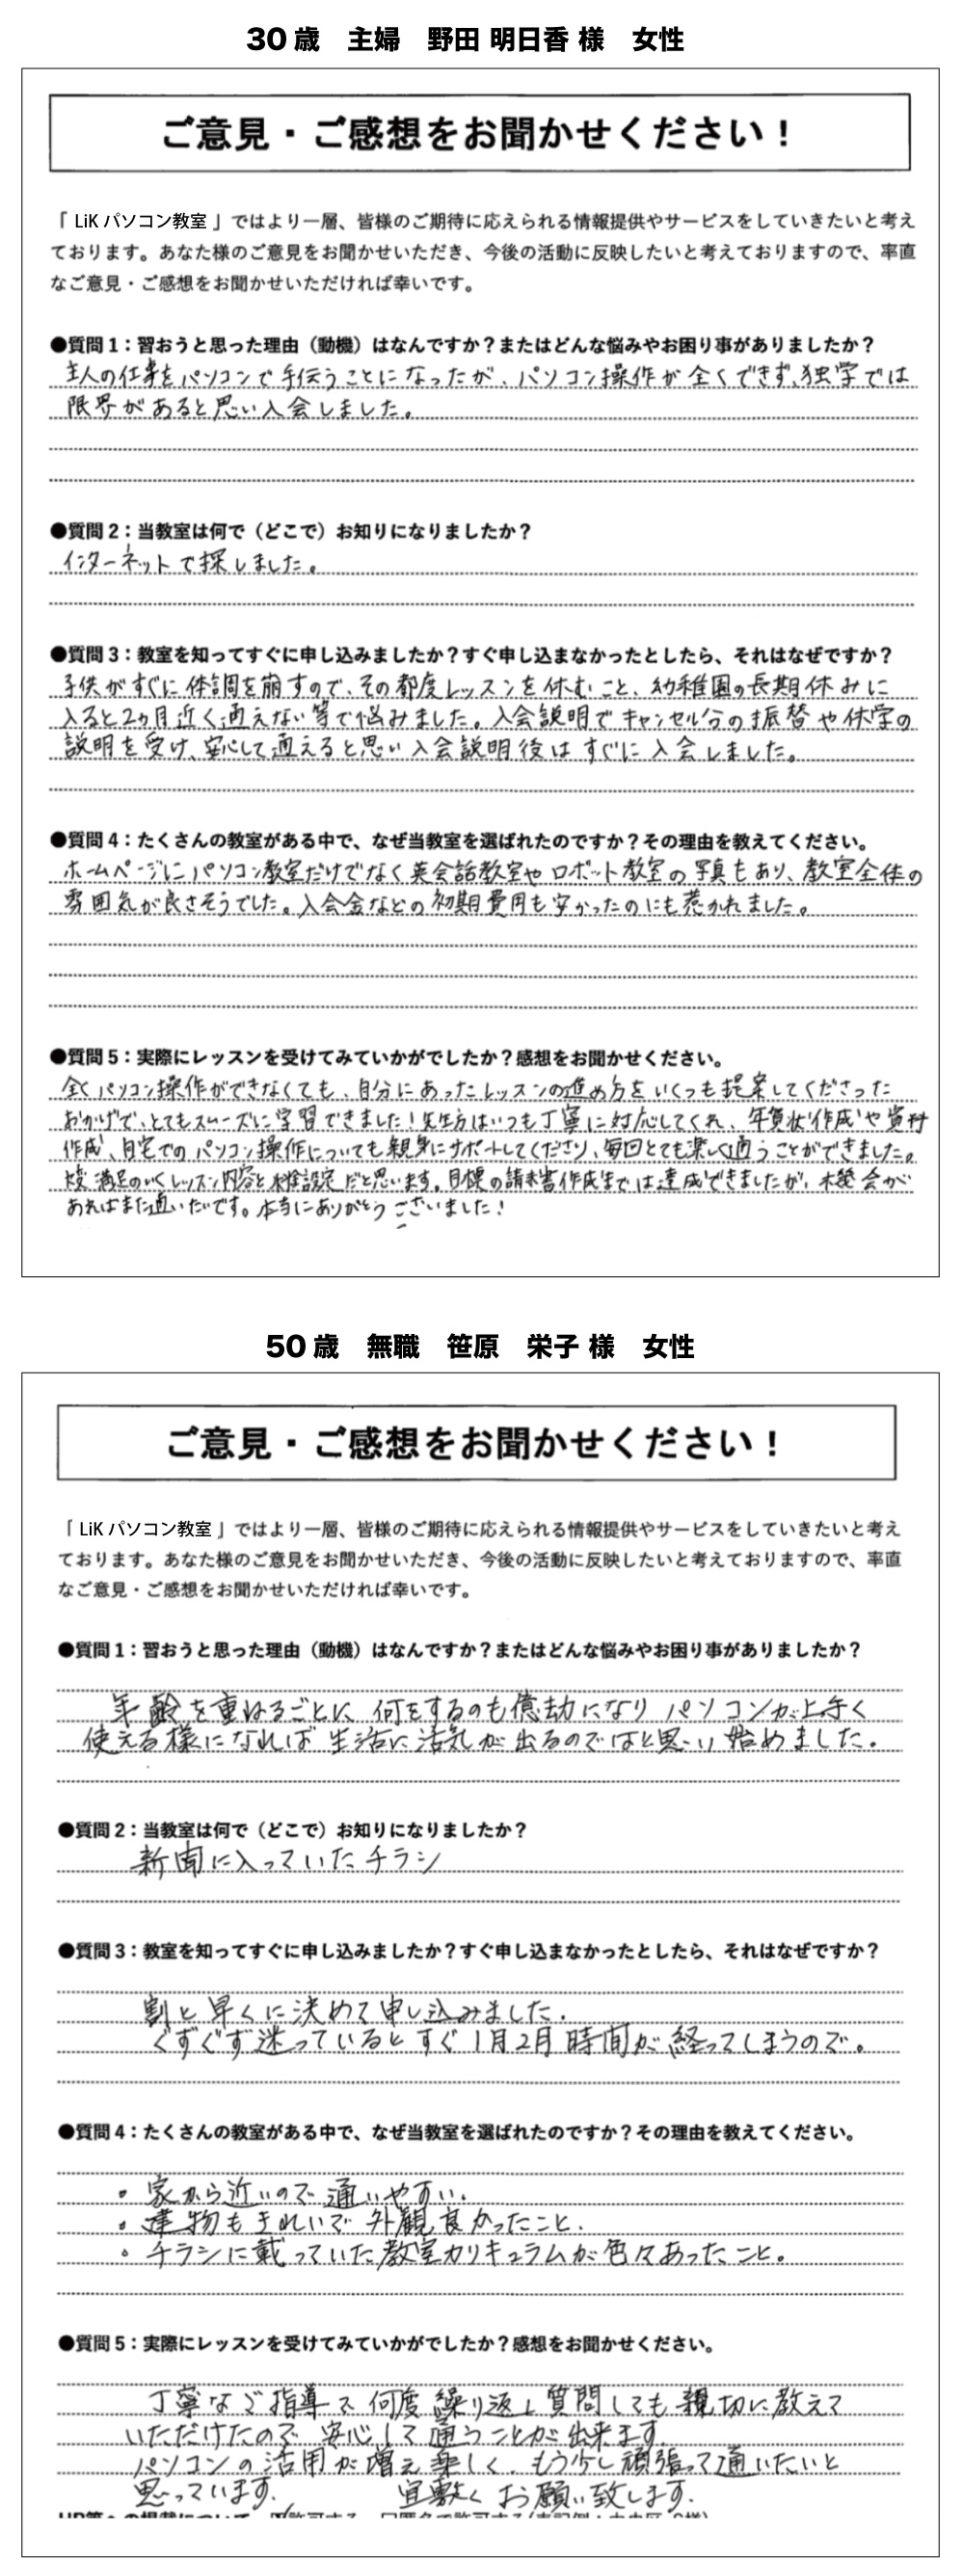 30歳　主婦　野田 明日香 様　女性
ご意見・ご感想をお聞かせください！
「 LiK パソコン教室 」ではより一層、皆様のご期待に応えられる情報提供やサービスをしていきたいと考え
ております。あなた様のご意見をお聞かせいただき、今後の活動に反映したいと考えておりますので、率直
なご意見・ご感想をお聞かせいただければ幸いです。
●質問1：習おうと思った理由（動機）はなんですか？またはどんな悩みやお困り事がありましたか？
主人の仕事をパソコンで手伝うことになったが、パソコン操作が全くできず、独学では
限界があると思い入会しました。
●質問2：当教室は何で（どこで）お知りになりましたか？
インターネットで探しました。
●質問3：教室を知ってすぐに申し込みましたか？すぐ申し込まなかったとしたら、それはなぜですか？
子供がすぐに体調を崩すので、その都度レッスンを休むこと、幼稚園の長期休みに
入ると2ヵ月近く通えない等で悩みました。入会説明でキャンセル分の振替や休学の
説明を受け、安心して通えると思い入会説明後はすぐに入会しました。
●質問4：たくさんの教室がある中で、なぜ当教室を選ばれたのですか？その理由を教えてください。
ホームページにパソコン教室だけでなく英会話教室やロボット教室の写真もあり、教室全体の
雰囲気が良さそうでした。入会金などの初期費用も安かったのにも惹かれました。
●質問5：実際にレッスンを受けてみていかがでしたか？感想をお聞かせください。
全くパソコン操作ができなくても、自分にあったレッスンの進め方をいくつも提案してくださった
おかげで、とてもスムーズに学習できました！先生方はいつも丁寧に対応してくれ、年賀状作成や資料
作成、自宅でのパソコン操作についても親身にサポートしてくださり、毎回とても楽しく通うことができました。
大変満足のいくレッスン内容と設定だと思います。目標の請求書作成までは達成できましたが、機会が
あればまた通いたいです。本当にありがとうございました！
50歳　無職　笹原　栄子 様　女性
ご意見・ご感想をお聞かせください！
「 LiK パソコン教室 」ではより一層、皆様のご期待に応えられる情報提供やサービスをしていきたいと考え
ております。あなた様のご意見をお聞かせいただき、今後の活動に反映したいと考えておりますので、率直
なご意見・ご感想をお聞かせいただければ幸いです。
●質問1：習おうと思った理由（動機）はなんですか？またはどんな悩みやお困り事がありましたか？
年齢を重ねるごとに何をするのも億劫になりパソコンが上手く
使える様になれば生活に活気が出るのではと思い始めました。
●質問2：当教室は何で（どこで）お知りになりましたか？
新聞に入っていたチラシ
●質問3：教室を知ってすぐに申し込みましたか？すぐ申し込まなかったとしたら、それはなぜですか？
割と早くに決めて申し込みました.
ぐずぐず迷っているとすぐ1月2月時間が経ってしまうので。
●質問4：たくさんの教室がある中で、なぜ当教室を選ばれたのですか？その理由を教えてください。
・家から近いので通いやすい.
・建物もきれいで外観良かったこと.
・チラシに載っていた教室カリキュラムが色々あったこと。
●質問5：実際にレッスンを受けてみていかがでしたか？感想をお聞かせください。
丁寧なご指導で何度繰り返し質問しても親切に教えて
いただけたので安心して通うことが出来ます.
パソコンの活用が増え楽しく. もう少し頑張って通いたいと
思っています.　宜敷くお願い致します.